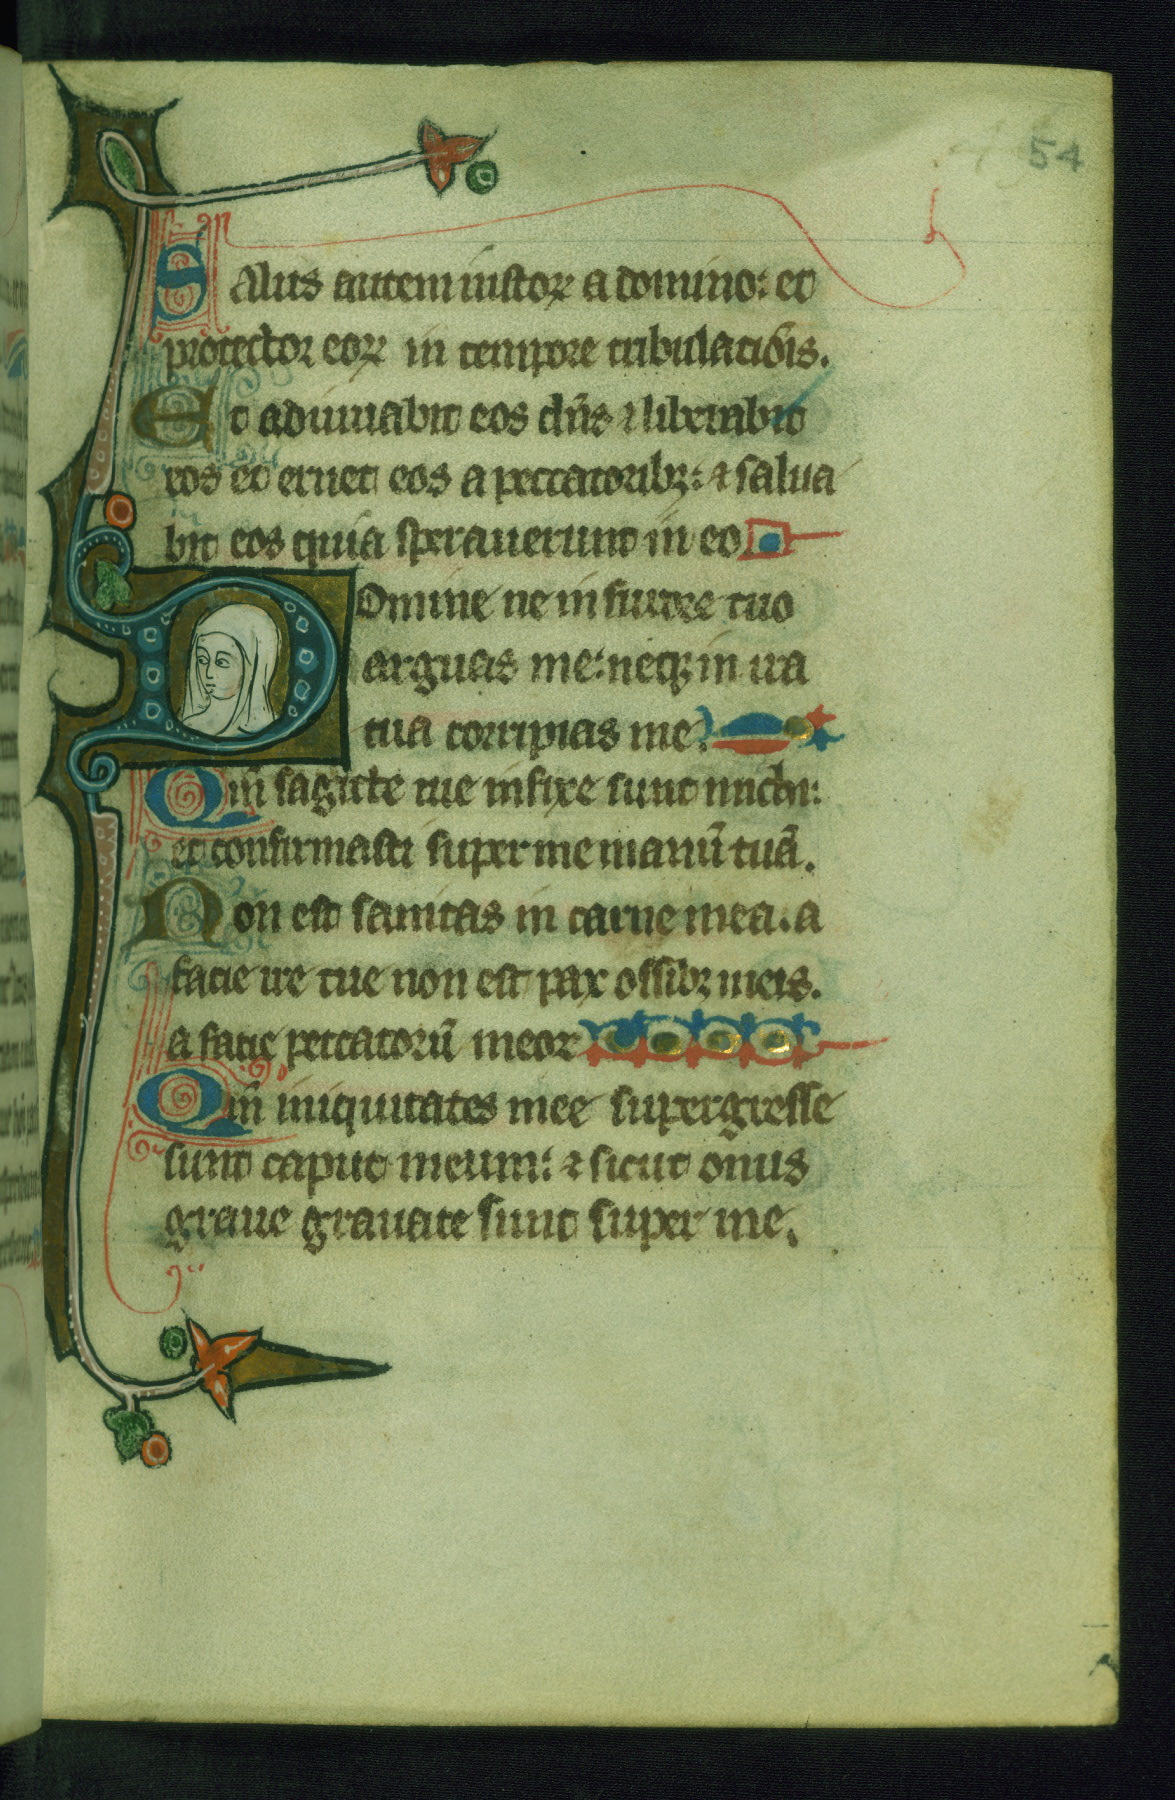 54
Salus autem iustoꝝ a domino: et
protector eoꝝ in tempore tribulatiōis.
Et adiuuabit eos dn̄s ⁊ liberabit
eos et eruet eos a peccatoribꝫ: ⁊ salua
bit eos quia sperauerunt in eo
Domine ne in furore tuo
arguas me: neqꝫ in ira
tua corripias me.
Qm̄ sagitte tue infixe sunt michi:
et confirmasti super me manū tuā.
Non est sanitas in carne mea. a
facie ire tue non est pax ossibꝫ meis.
a facie peccatorū meoꝝ
Qm̄ iniquitates mee supergresse
sunt caput meum: ⁊ sicut onus
graue grauate sunt super me.